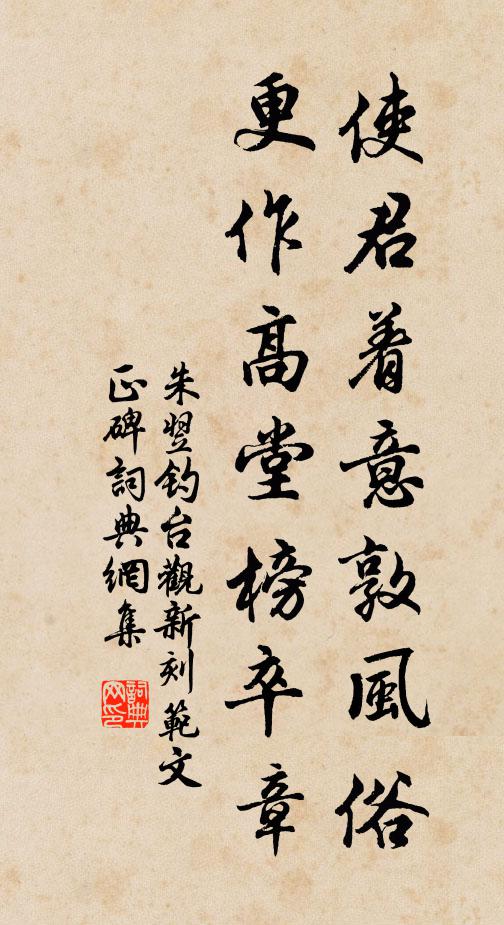 使君着意敦風俗
更作高堂榜卒章
朱翌釣台觀新刻範文
正碑詞典網集
詞典网印